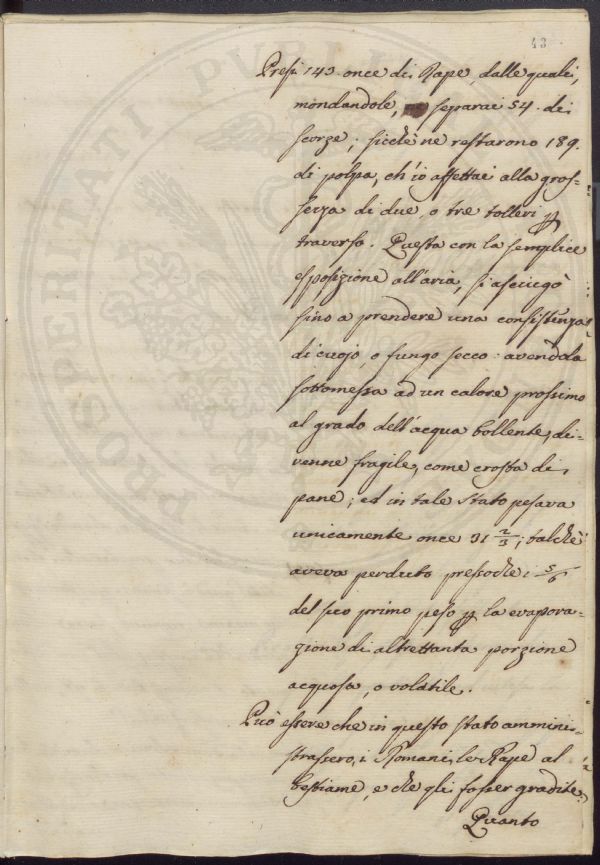 43
Presi 143. once di Rape, dalle quali,
mondandole, separai 54. di
scorze; sicchè ne restarono 189.
di polpa, ch'io affettai alla gros=
sezza di due, o tre tolleri p
traverso. Questa con la semplice
esposizione all'aria, si asciugò
sino a prendere una consistenza
di cuojo, o fungo secco: avendola
sottomessa ad un calore prossimo
al grado dell'acqua bollente, di=
venne fragile, come crosta di
pane; ed in tale stato pesava
unicamente once 31 2/3; talchè
aveva perduto pressochè i 5/6
del suo primo peso p la evapora=
zione di altrettanta porzione
acquosa, o volatile.
Può essere che in questo stato ammini=
strassero i Romani le Rape al
bestiame, e che gli fosser gradite.
Quanto
PROSPERITATI PUBLICAE